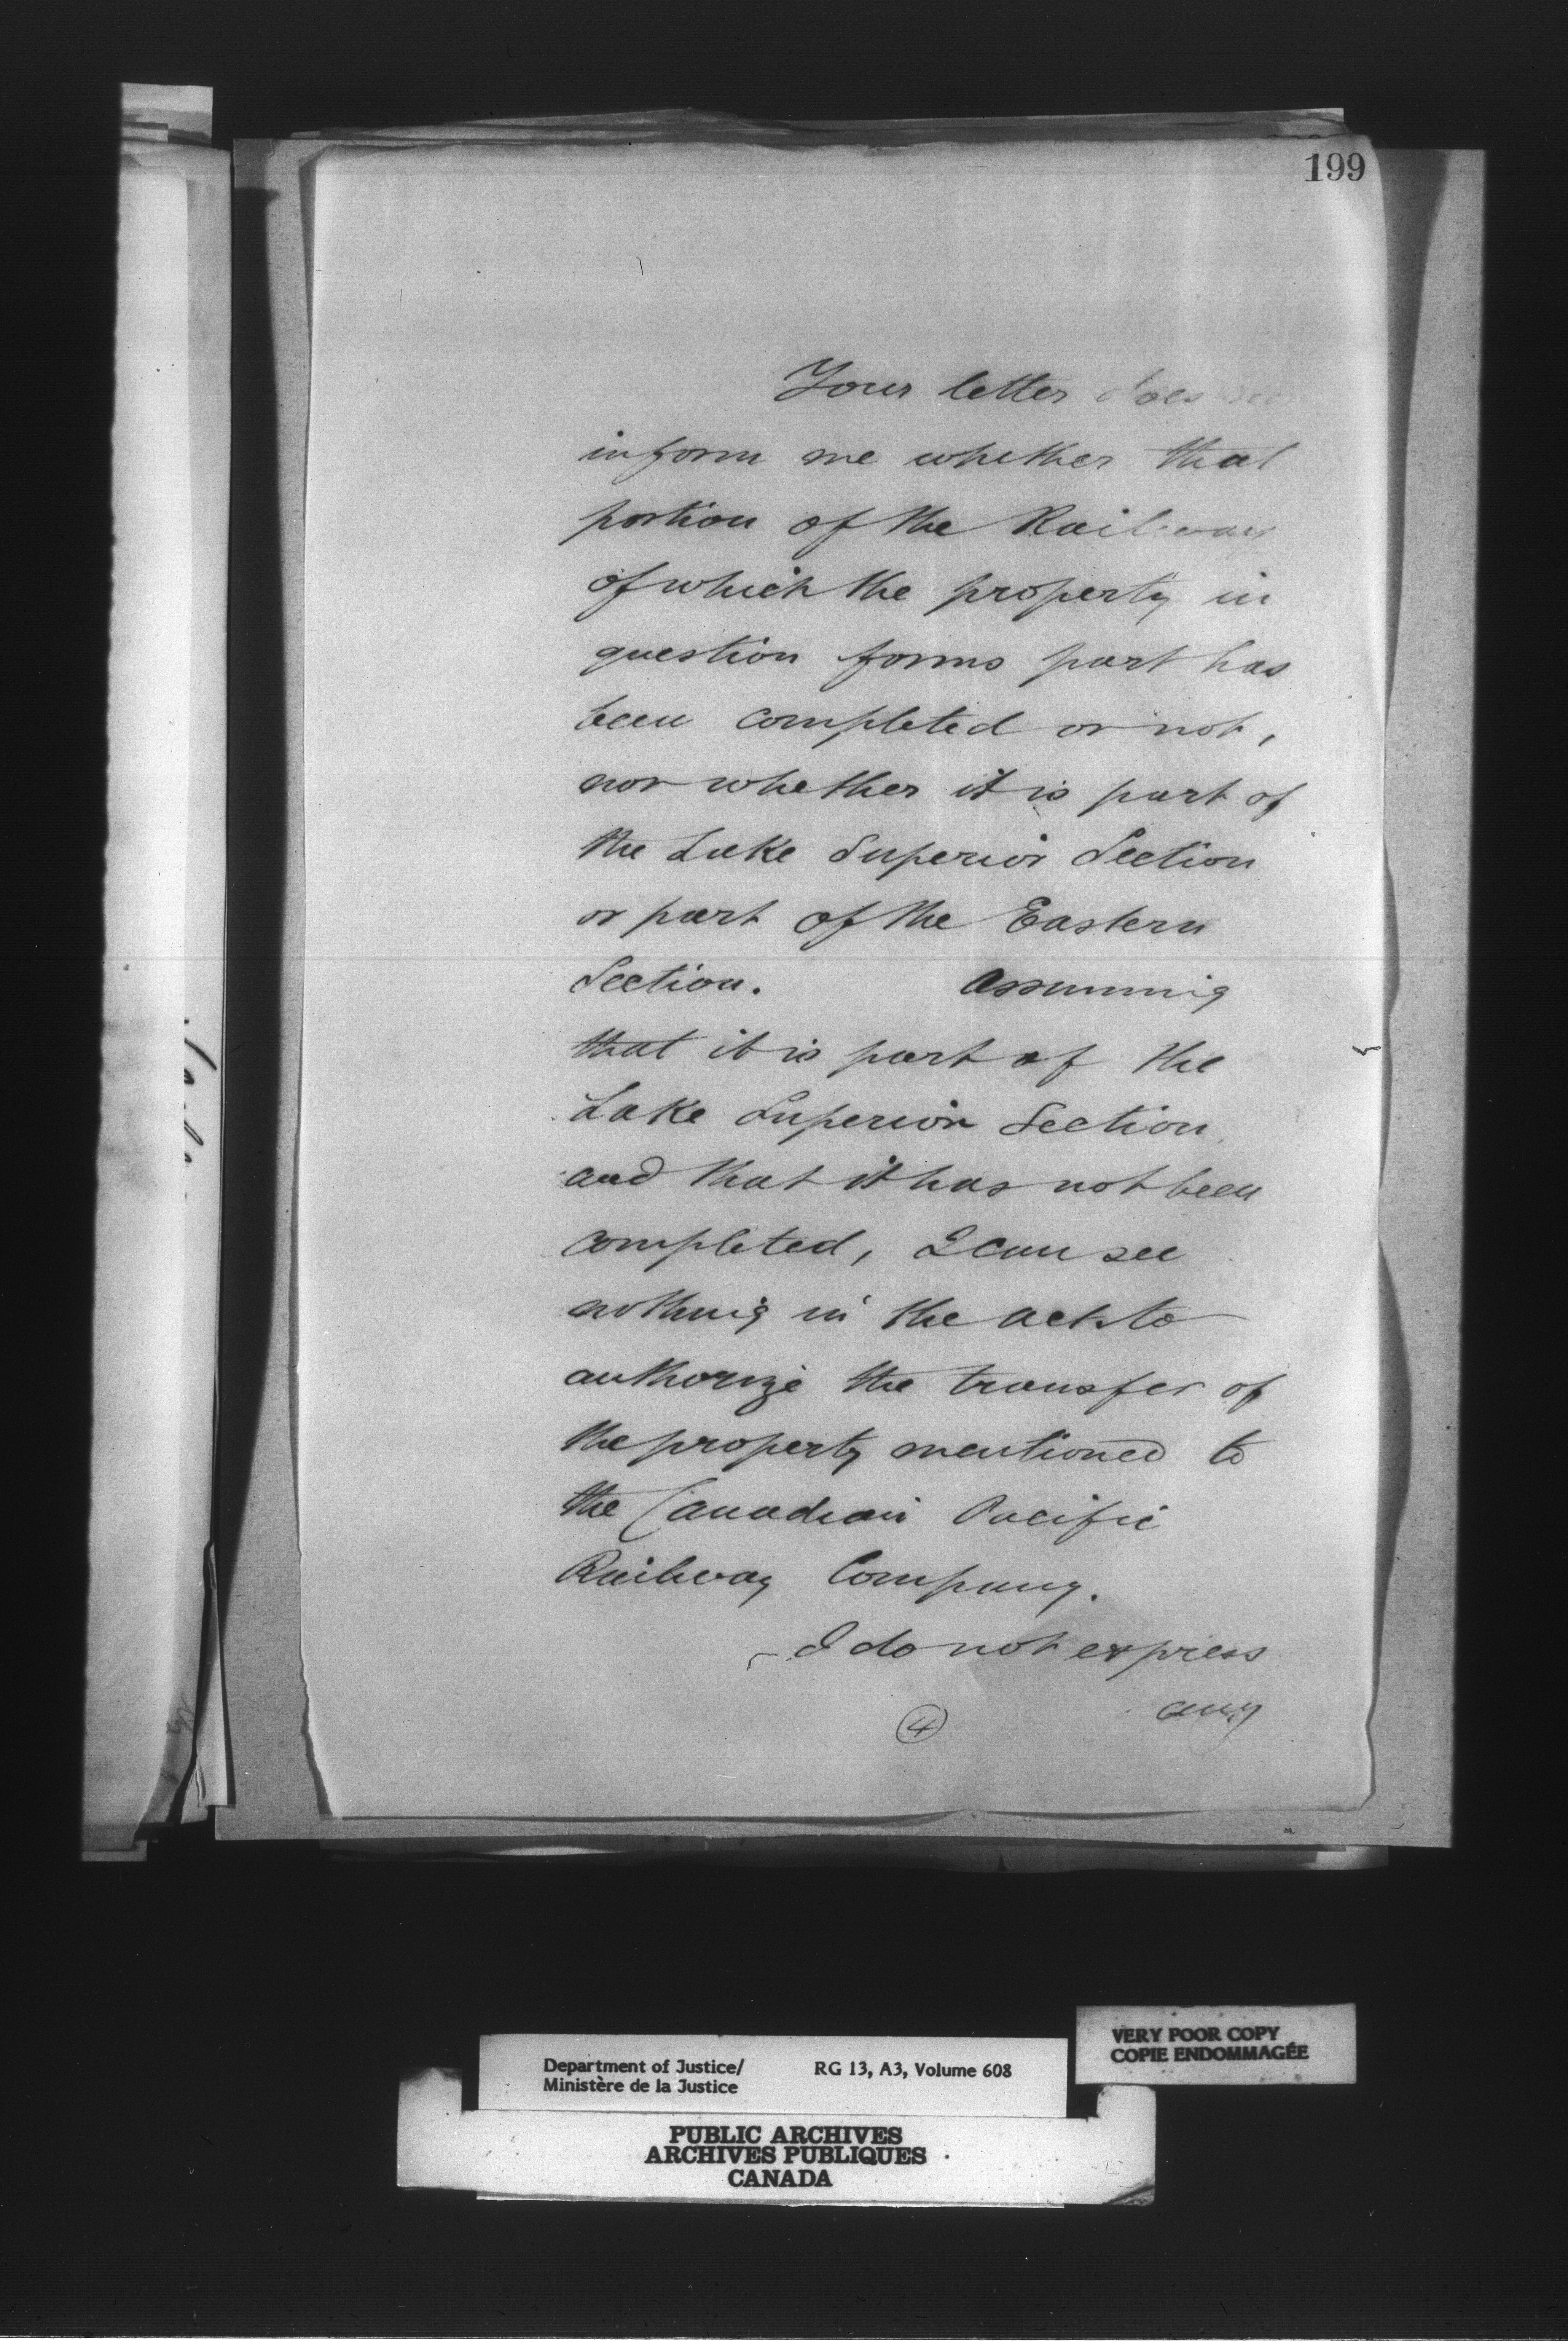 199
Your letter does
inform me whether that
portion of the Railway
of which the property in
question forms part has
been completed or not,
nor whether it is part of
the Lake Superior Section
or part of the Eastern
Section. Assuming
that it is part of the
Lake Superior Section
and that it has not been
completed, I can see
nothing in the act to
authorize the transfer of
the property mentioned to
the Canadian Pacific
Railway Company.
I do not express
any
4
Department of Justice/ RG 13, A3, Volume 608
Ministère de la Justice
VERY POOR COPY
COPIE ENDOMMAGÉE
PUBLIC ARCHIVES
ARCHIVES PUBLIQUES
CANADA